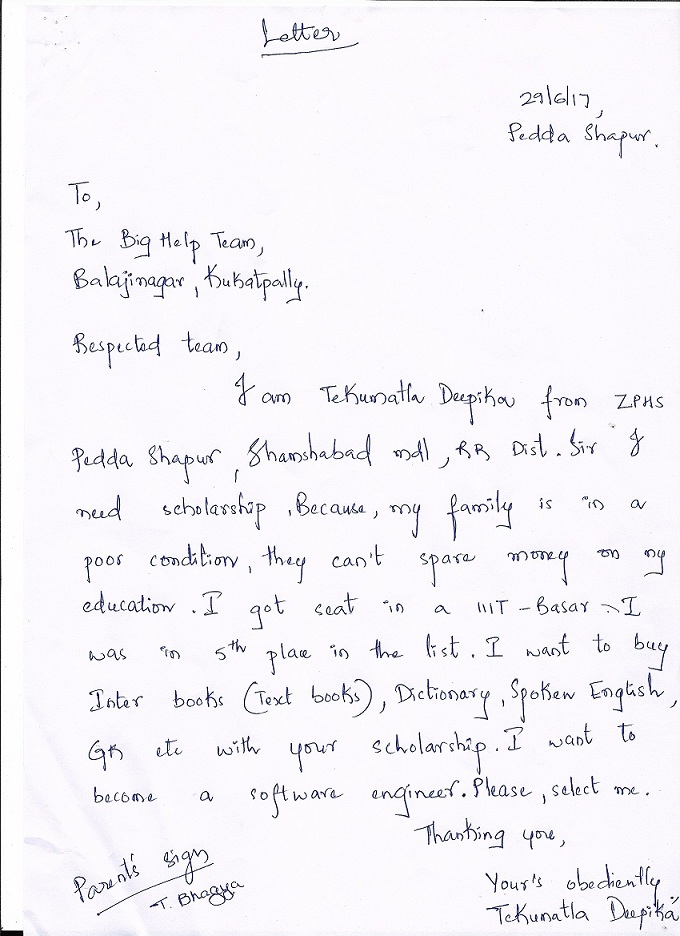 Letter
29/6/17,
Pedda Shapur.
To,
The Big Help Team,
Balajinagar, Kukatpally.
Respected team,
I am Tekumatla Deepika from ZPHS
Pedda Shapur, Shamshabad mdl, RR Dist. Sir I
need scholarship. Because, my family is in a
poor condition, they can't spare money on my
education. I got seat in a IIIT - Basar. I
was in 5th place in the list. I want to buy
Inter books (Text books), Dictionary, Spoken English,
GK etc with your scholarship. I want to
become a software engineer. Please, select me.
Thanking you,
Parent's sign
T. Bhagya
Your's obediently
Tekumatla Deepika